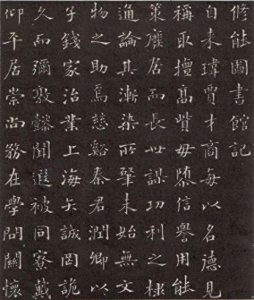 修能圖書館記
自來瑋賈才商每以名德見
稱取擅高貲毋隳信譽用能
策廢居而長世謀功利之極
通論其漸染所肇未始無文
物之助焉慈谿秦君潤卿以
子錢家治業上海矢誠罔詭
久而彌敦懿聞遐被同寮戴
仰平居崇尚務在學問關懷